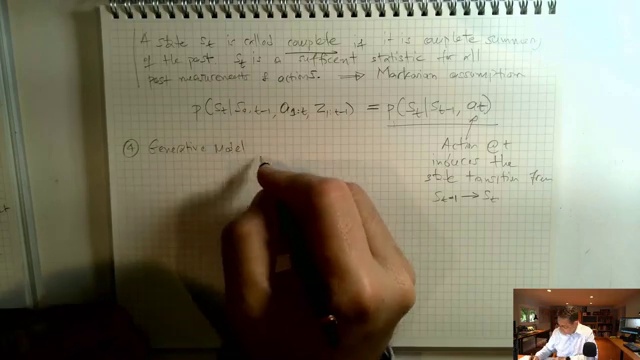 A state St is called complete if it is complete summary
of the past St is a sufficent statistic for all
past measurements & actions. ⟹ Markovian assumption
p(St|S0:t-1, a1:t, Z1:t-1) = p(St|St-1, at)
④ Generative Model
Action @ t
induces the
state transition from
St-1 → St